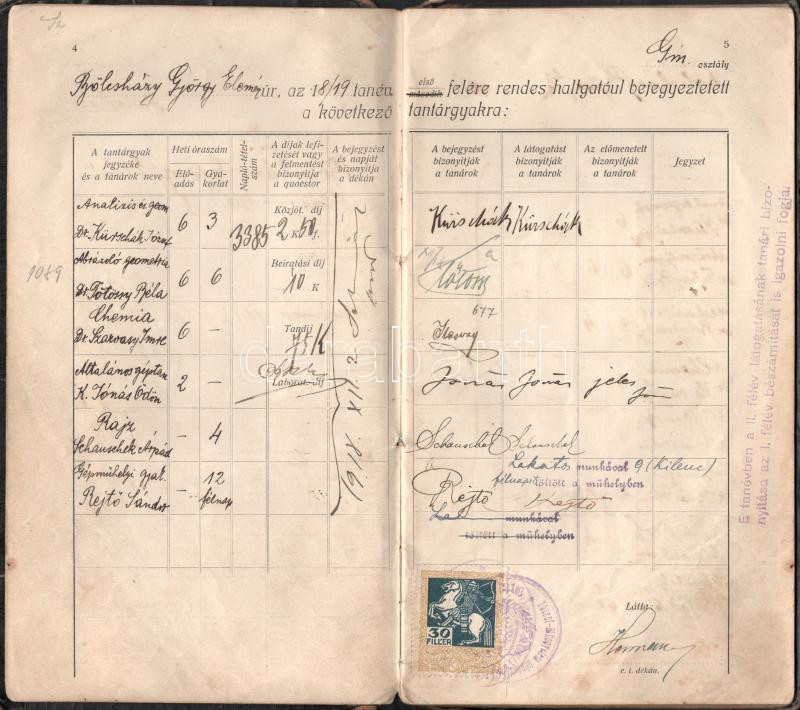 4
Bölcsházy György Elemér úr, az 18/19 tanév
a következő
A tantárgyak jegyzéke és a tanárok neve
Heti óraszám
Előadás
Gyakorlat
Napló-tétel-szám
A díjak lefizetését vagy a felmentést bizonyítja a quaestor
A bejegyzést és napját bizonyítja a dékán
Analizis és geom
Dr. Kürschák József
6
3
3385
Közjót. díj
2 K 50 f.
Ábrázoló geometria
Dr. Tötössy Béla
6
6
Beiratási díj
10 K
1089
Chemia
Dr. Szarvasy Imre
6
–
Tandíj
75 K
Általános géptan
K. Jónás Ödön
2
–
Laborat. díj
Rajz
Schauschek Árpád
–
4
Gépműhelyi gyak.
Rejtő Sándor
–
12
félnap
5
Gm. osztály
első
második
felére rendes hallgatóul bejegyeztetett
tantárgyakra:
A bejegyzést bizonyítják a tanárok
A látogatást bizonyítják a tanárok
Az előmenetelt bizonyítják a tanárok
Jegyzet
Kürschák Kürschák
677
Jónás Jónás jeles
Schauschek Schauschek
Lakatos munkával 9 (Kilenc)
félnapit töltött a műhelyben
Rejtő Rejtő
munkával
töltött a műhelyben
30
FILLÉR
Látta:
e. i. dékán.
E tanévben a II. félév látogatásának tanári bizo-
nyítása az I. félév beszámítását is igazolni fogja.
darabanth